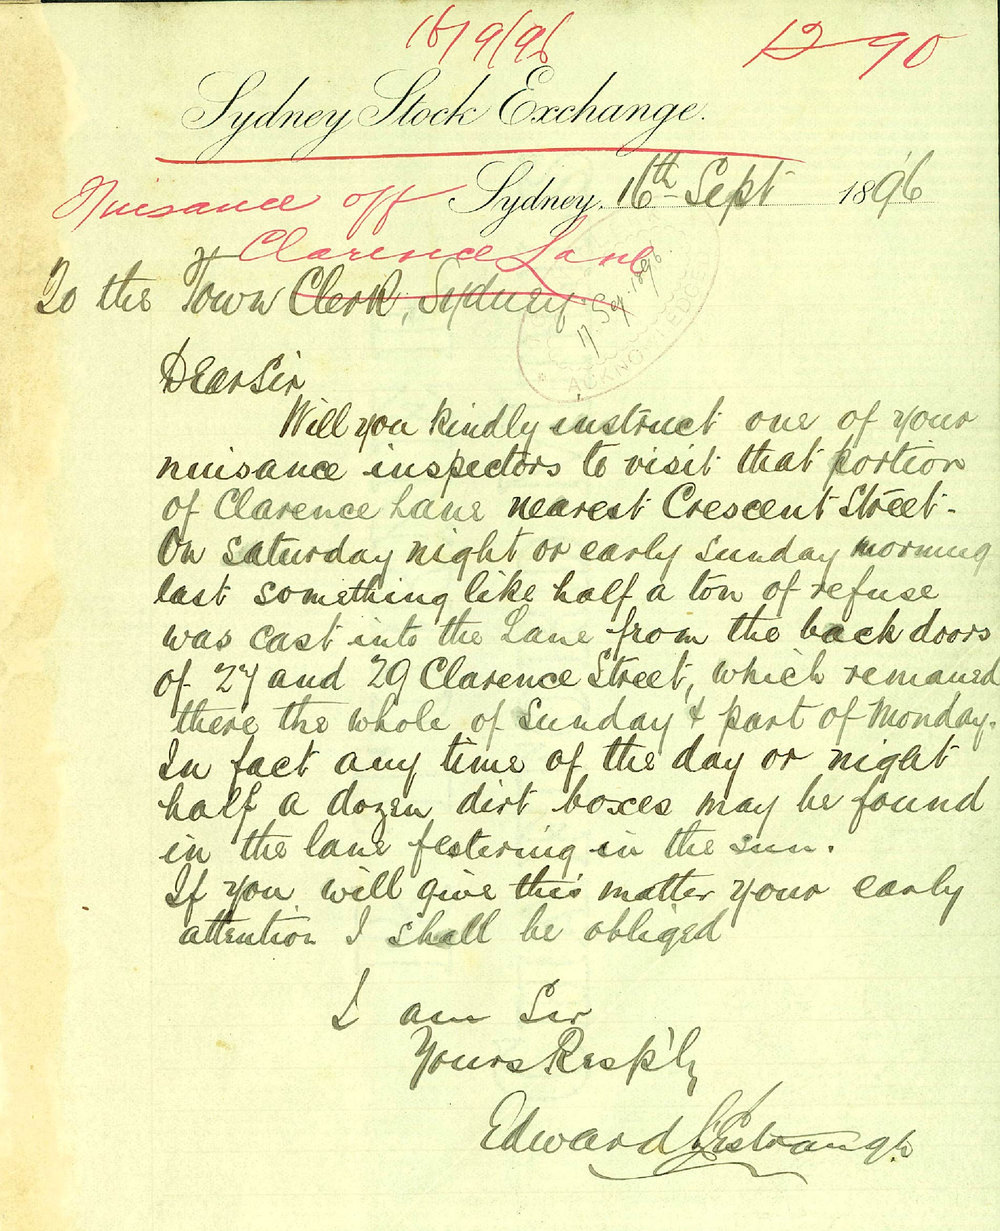 16/9/96 1290
Sydney Stock Exchange.
Nuisance off
Clarence Lane
Sydney, 16th Sept 1896
To the Town Clerk, Sydney
17. Sep. 1896
ACKNOWLEDGED
Dear Sir
Will you kindly instruct one of your
nuisance inspectors to visit that portion
of Clarence Lane nearest Crescent Street.
On saturday night or early sunday morning
last something like half a ton of refuse
was cast into the Lane from the back doors
of 27 and 29 Clarence Street, which remaned
there the whole of sunday & part of Monday.
In fact any time of the day or night
half a dozen dirt boxes may be found
in the lane festering in the sun.
If you will give this matter your early
attention I shall be obliged
I am Sir
Yours Resp'ly
Edward L'Estrange